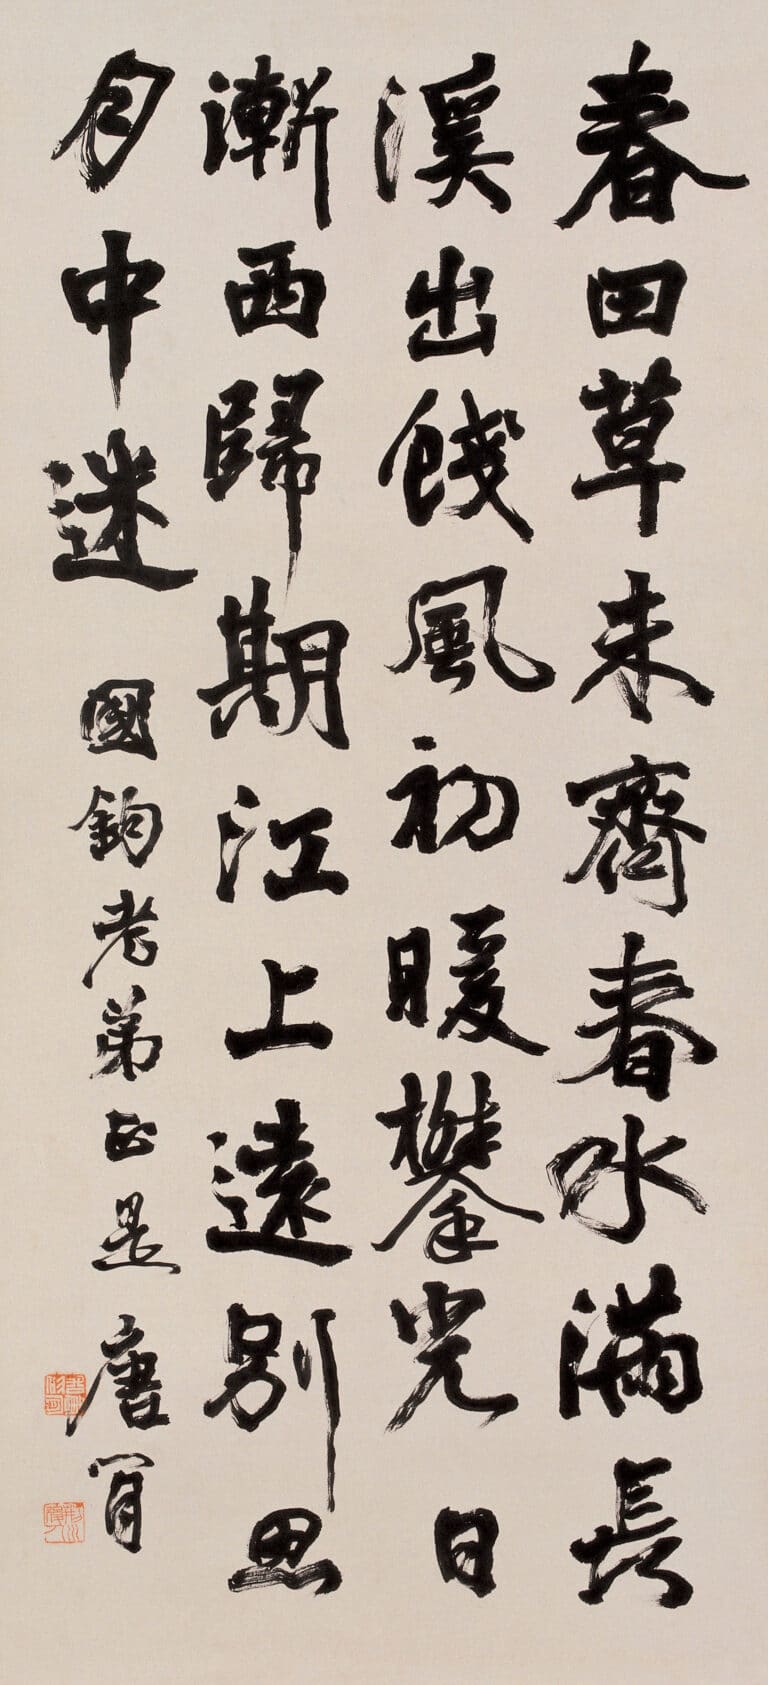 春田草未齊春水滿長
溪出餞風初暖攀光日
漸西歸期江上遠別思
月中迷 國鈞老弟正是 唐肎